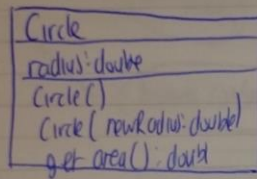 Circle
radius: double
Circle()
Circle(newRadius: double)
get area(): doubl